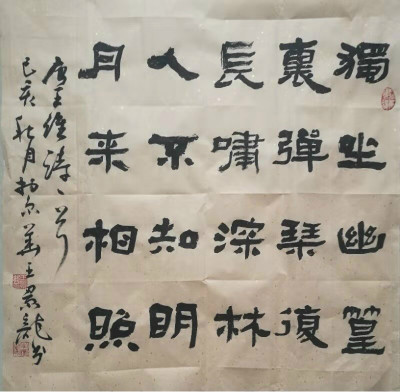 獨坐幽篁
裏彈琴復
長嘯深林
人不知明
月来相照
唐王維詩一首
己亥秋月